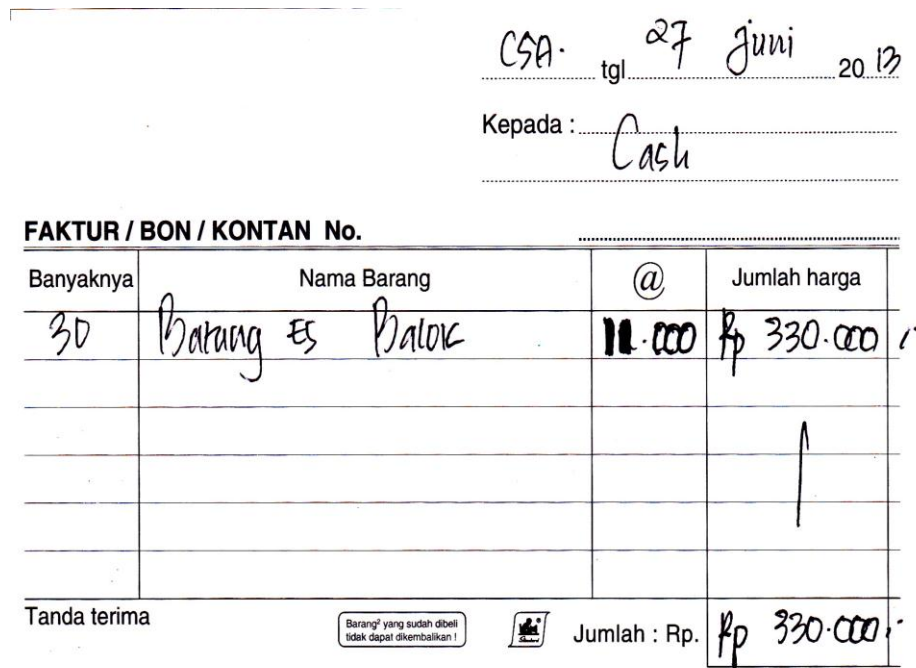 CSA. tgl 27 Juni 20 13
Kepada : Cash
FAKTUR / BON / KONTAN No.
Banyaknya Nama Barang @ Jumlah harga
30 Barang Es Balok 11.000 Rp 330.000 ,-
Tanda terima
Barang² yang sudah dibeli
tidak dapat dikembalikan !
Jumlah : Rp. Rp 330.000,-